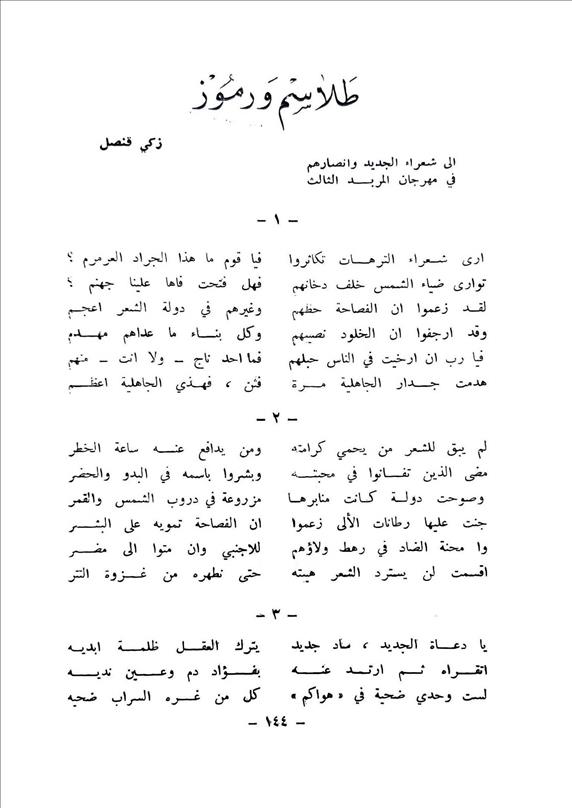 طلاسم ورموز
زكي قنصل
الى شعراء الجديد وانصارهم
في مهرجان المربد الثالث
- ١ -
ارى شعراء الترهات تكاثروا فيا قوم ما هذا الجراد العرمرم ؟
توارى ضياء الشمس خلف دخانهم فهل فتحت فاها علينا جهنم ؟
لقد زعموا ان الفصاحة حظهم وغيرهم في دولة الشعر اعجم
وقد ارجفوا ان الخلود نصيبهم وكل بناء ما عداهم مهدم
فيا رب ان ارخيت في الناس حبلهم فما احد ناج - ولا انت - منهم
هدمت جدار الجاهلية مرة فثن ، فهذي الجاهلية اعظم
- ٢ -
لم يبق للشعر من يحمي كرامته ومن يدافع عنه ساعة الخطر
مضى الذين تفانوا في محبته وبشروا باسمه في البدو والحضر
وصوحت دولة كانت منابرها مزروعة في دروب الشمس والقمر
جنت عليها رطانات الألى زعموا ان الفصاحة تمويه على البشر
وا محنة الضاد في رهط ولاؤهم للاجنبي وان متوا الى مضر
اقسمت لن يسترد الشعر هيبته حتى نطهره من غزوة التتر
- ٣ -
يا دعاة الجديد ، ساد جديد يترك العقل ظلمة ابديه
اتقراه ثم ارتد عنه بفؤاد دم وعين نديه
لست وحدي ضحية في «هواكم» كل من غره السراب ضحيه
- ١٤٤ -